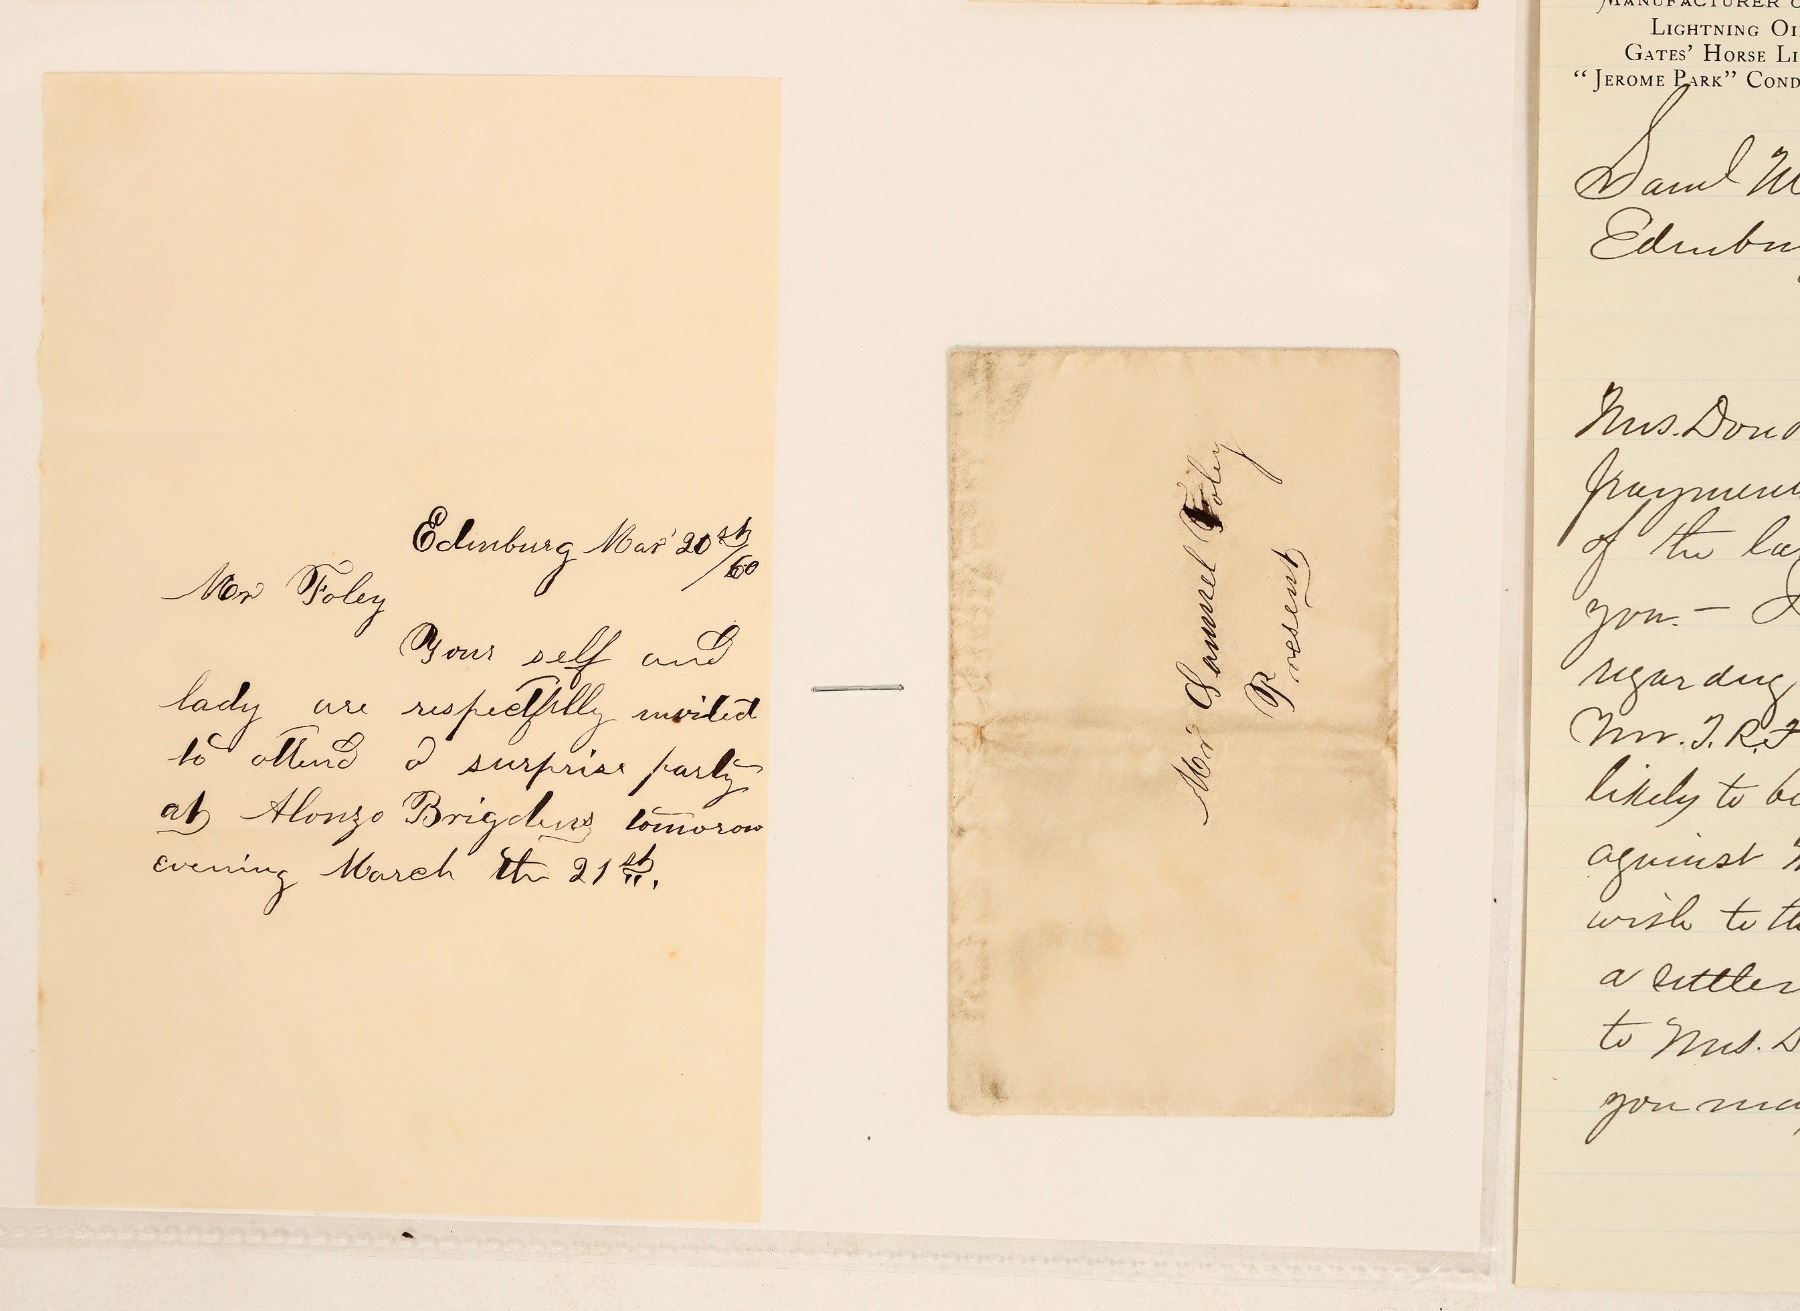 Edinburg Mar 20th
/60
Mr Foley
Your self and
lady are respectfully invited
to attend a surprise party
at Alonzo Brigdens tomorow
evening March the 21st.
Mr Samuel Foley
Present
MANUFACTURER O
LIGHTNING OI
GATES' HORSE LI
"JEROME PARK" COND
Saml M
Edinbu
Mrs. Dond
fragmen
of the la
you. — I
regarding
Mr. T. R. F
likely to be
against M
wish to th
a settle
to Mrs. D
you may